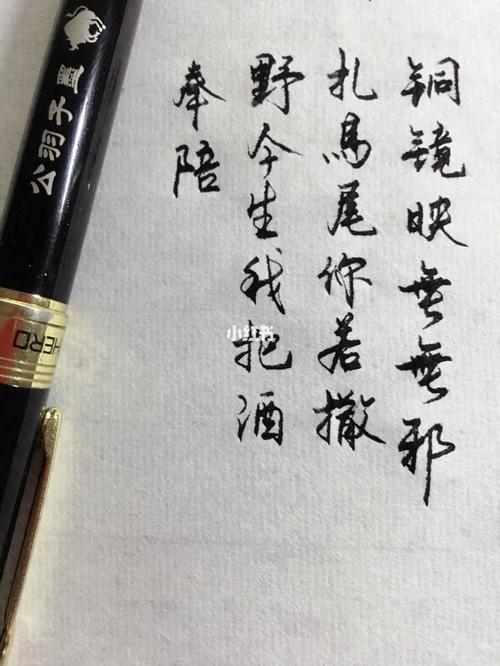 铜镜映無無邪
扎馬尾你若撒
野今生我把酒
奉陪
公羽子墨
HERO
小红书